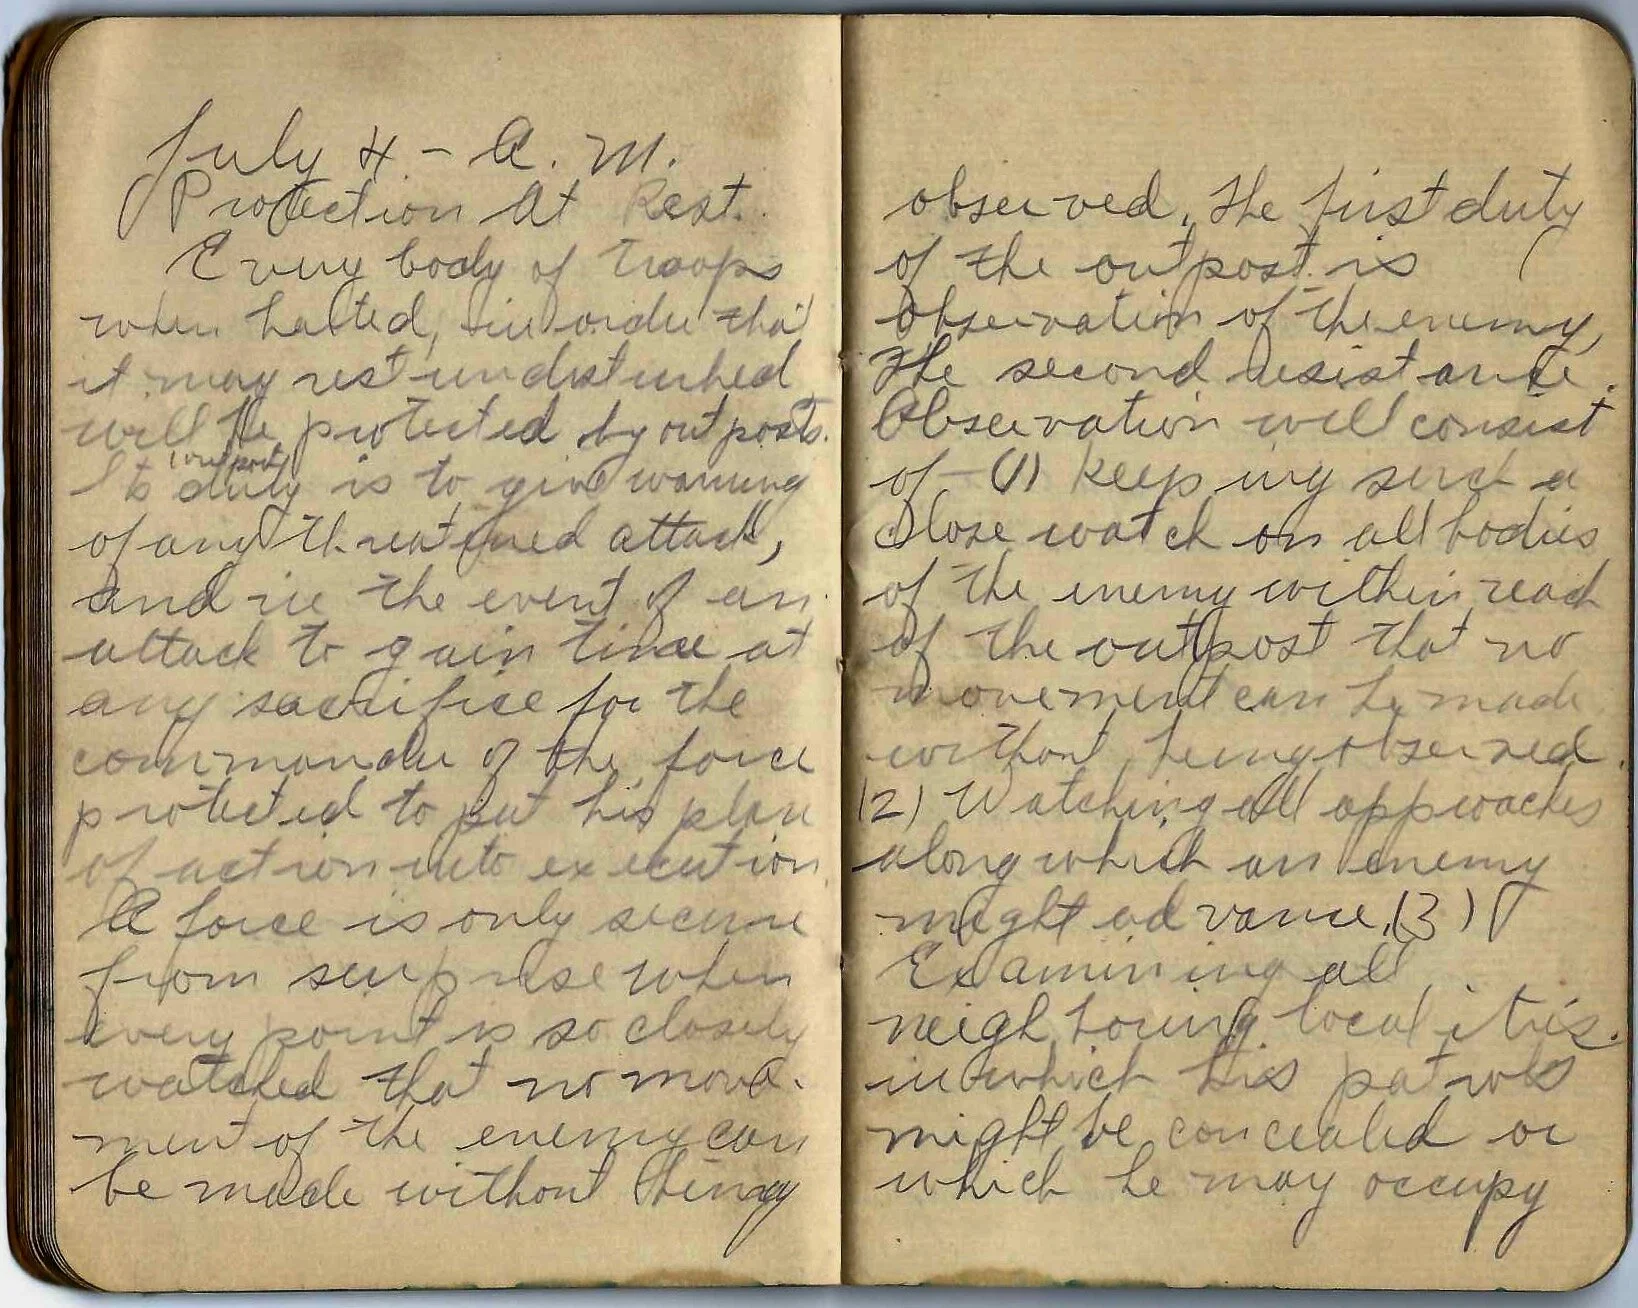 July 4 - A. M.
Protection At Rest.
Every body of troops
when halted, in order that
it may rest undisturbed
will be protected by outposts.
(outpost)
Its duty is to give warning
of any threatened attack,
and in the event of an
attack to gain time at
any sacrifice for the
commander of the force
protected to put his plan
of action into execution.
A force is only secure
from surprise when
every point is so closely
watched that no move-
ment of the enemy can
be made without being
observed. The first duty
of the outpost is
observation of the enemy,
The second resistance.
Observation will consist
of - (1) keeping such a
close watch on all bodies
of the enemy within reach
of the outpost that no
movement can be made
without being observed.
(2) Watching all approaches
along which an enemy
might advance, (3)
Examining all
neighbouring localities.
in which his patrols
might be concealed or
which he may occupy